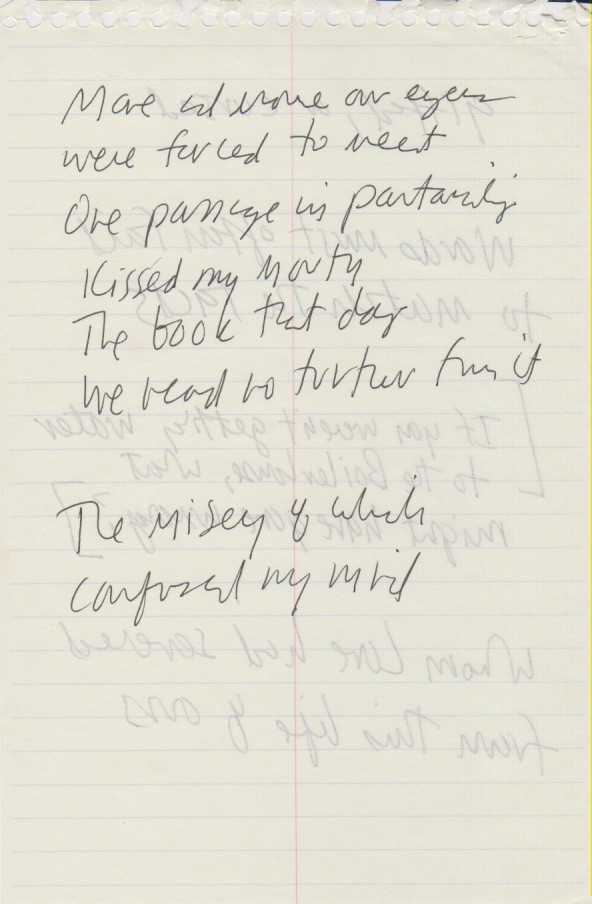 More and more our eyes
were forced to meet
One passage in particular
Kissed my mouth
The book that day
We read no further from it
The misery of which
confused my mind